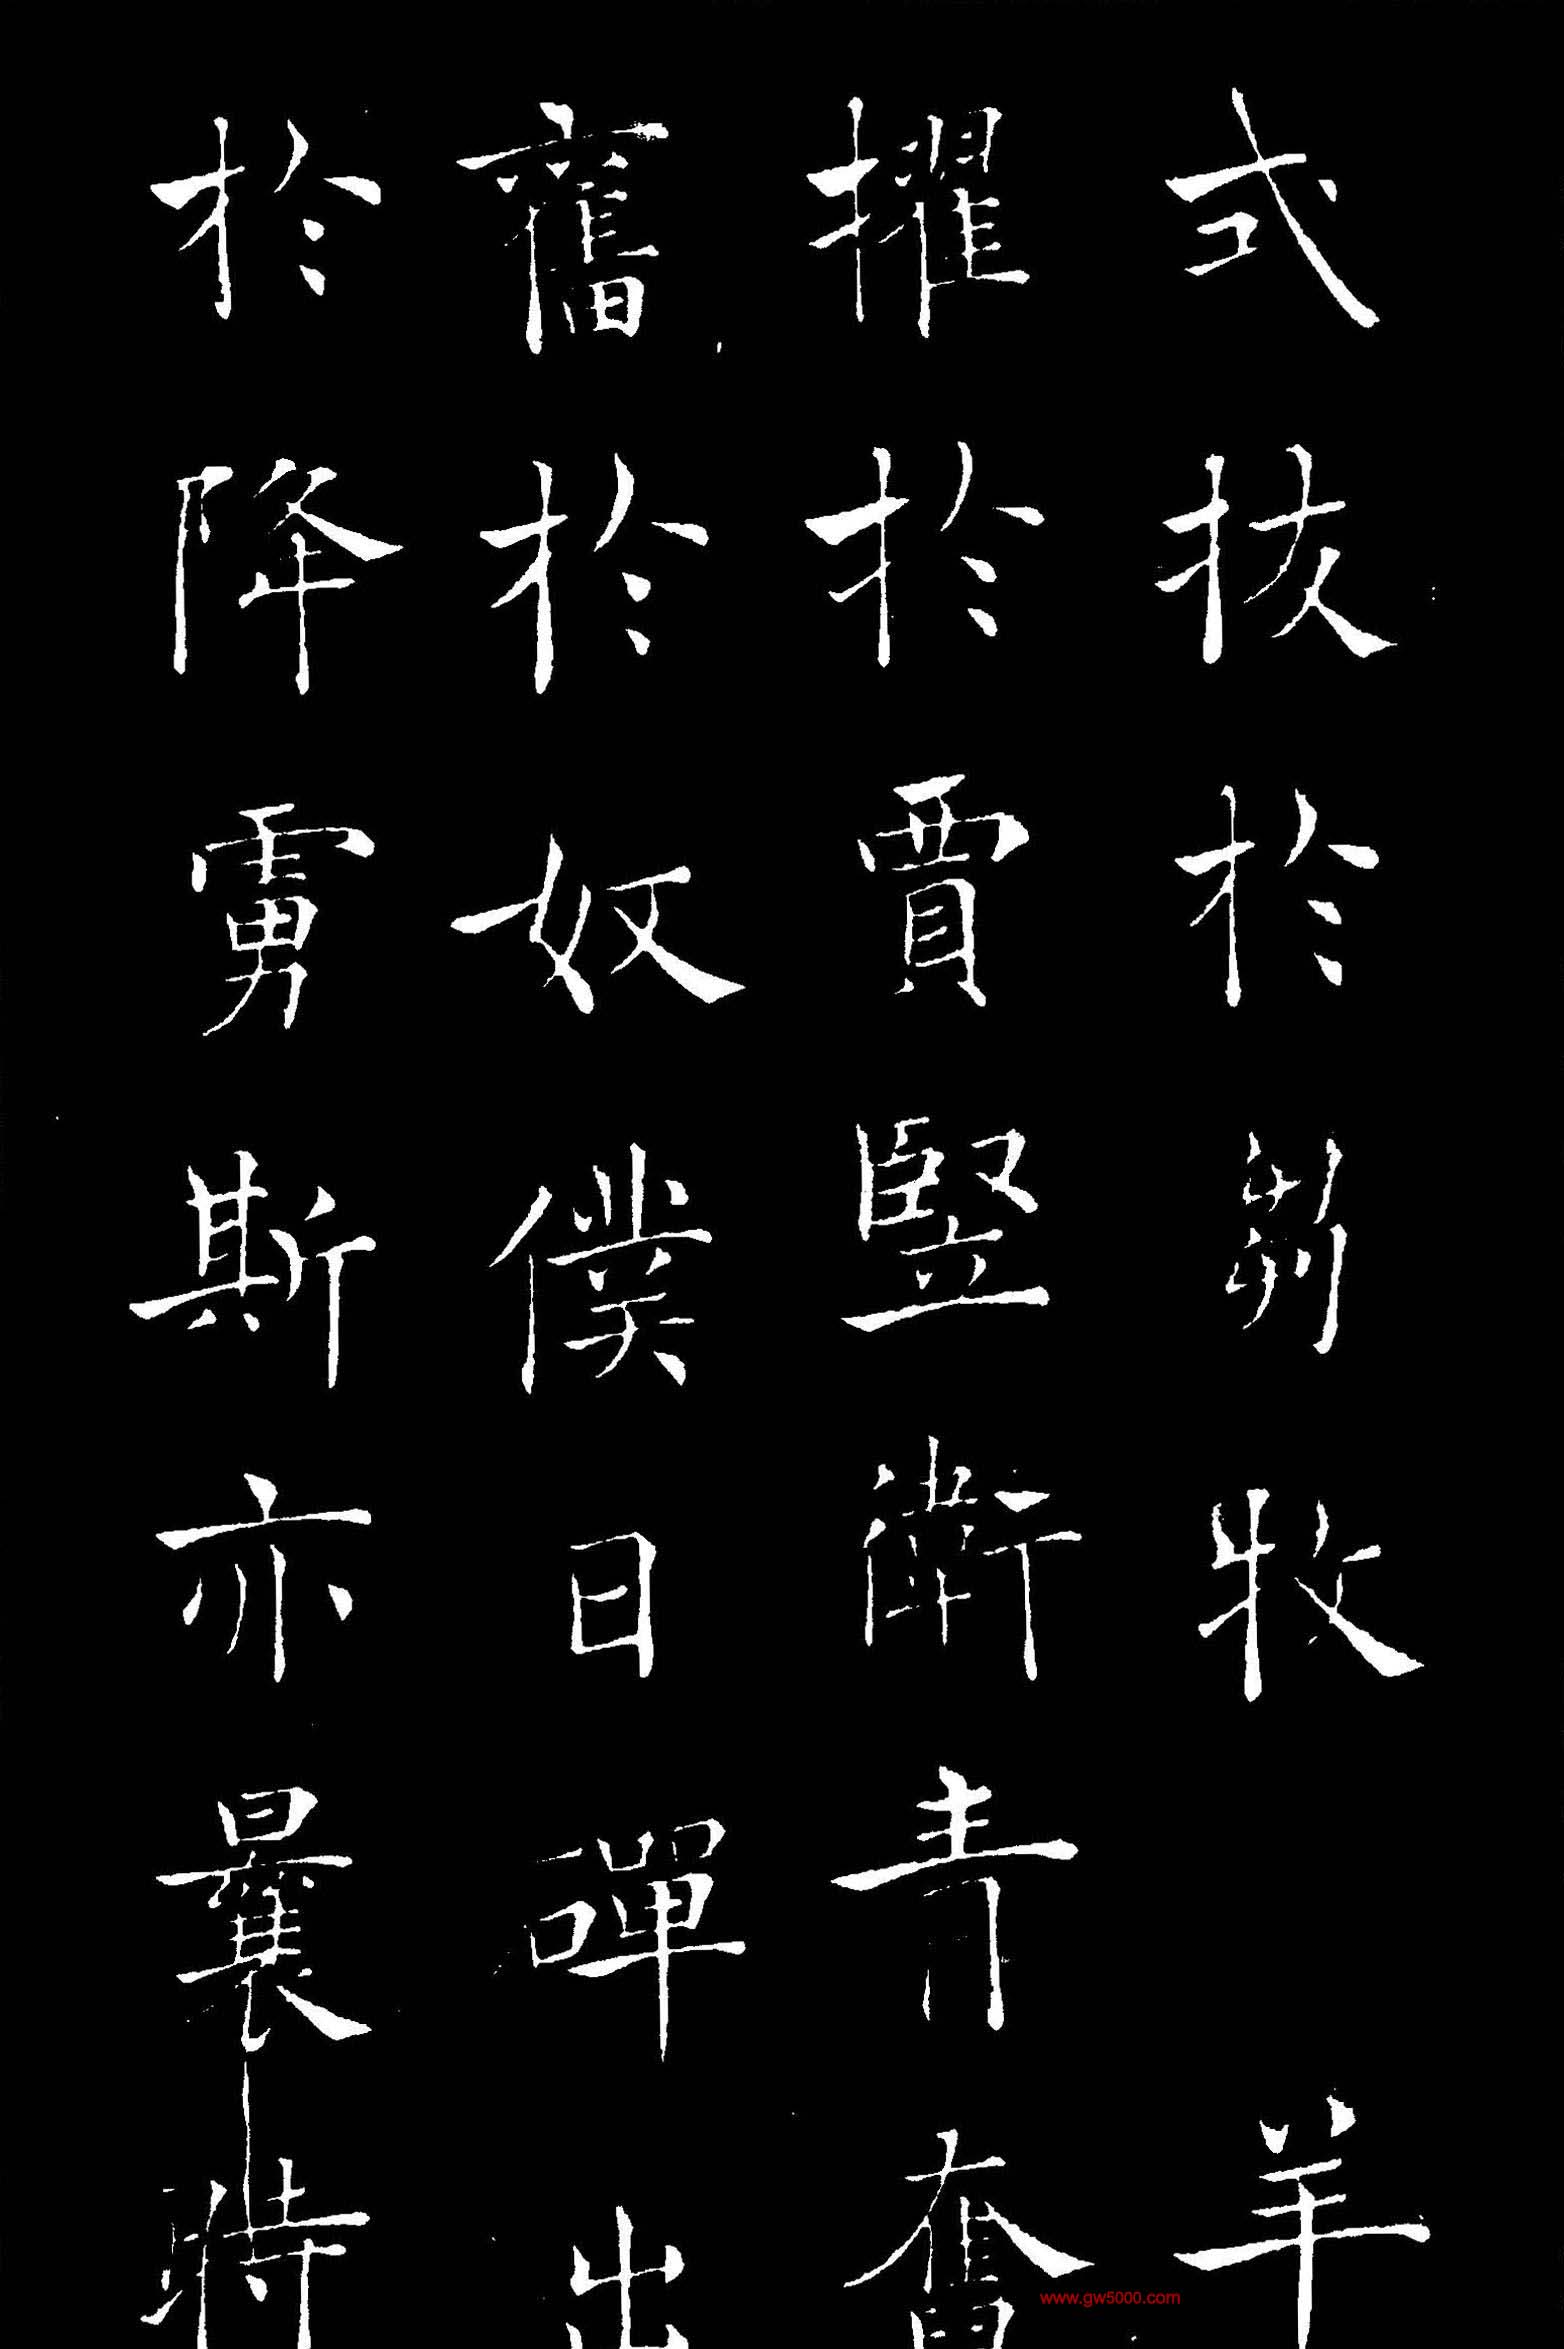 式拔於芻牧羊
擢於賈竪衛青奮
舊於奴僕日磾出
於降虜斯亦曩時
www.gw5000.com